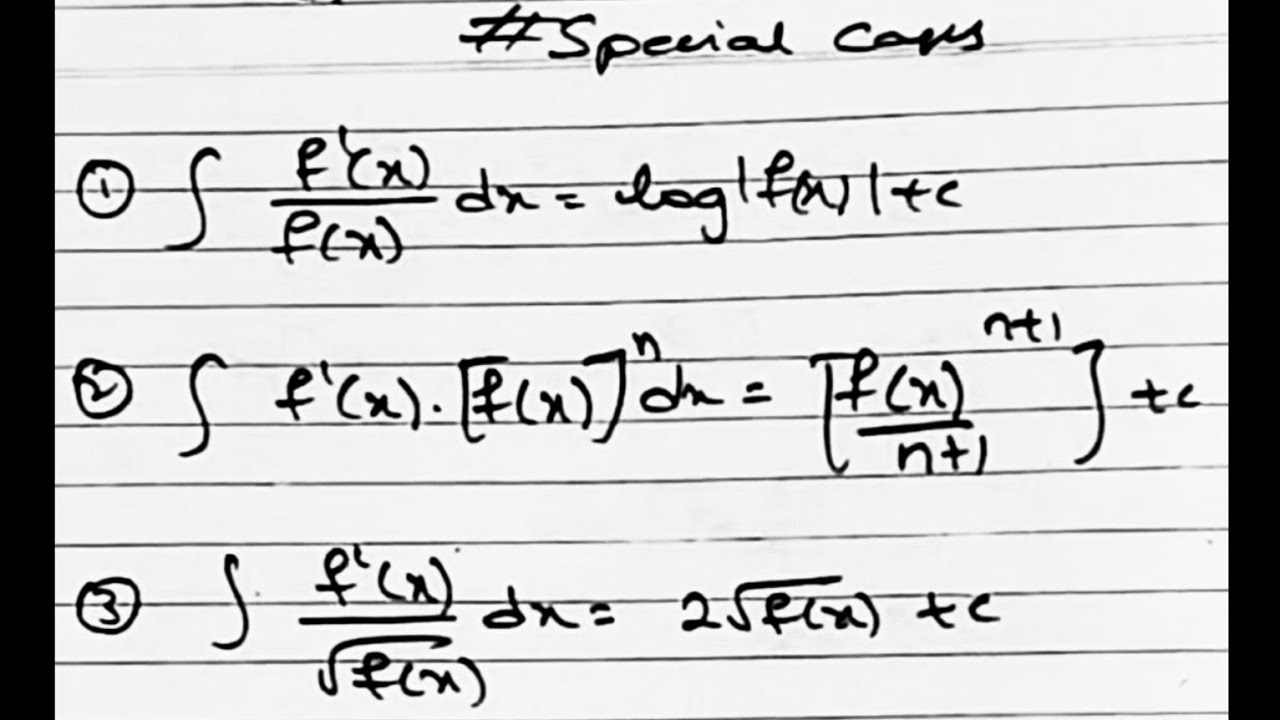 #Special cases
① ∫ f'(x)/f(x) dx = log|f(x)|+c
② ∫ f'(x).[f(x)]^n dx = [f(x)^(n+1)/n+1] +c
③ ∫ f'(x)/√f(x) dx = 2√f(x) +c